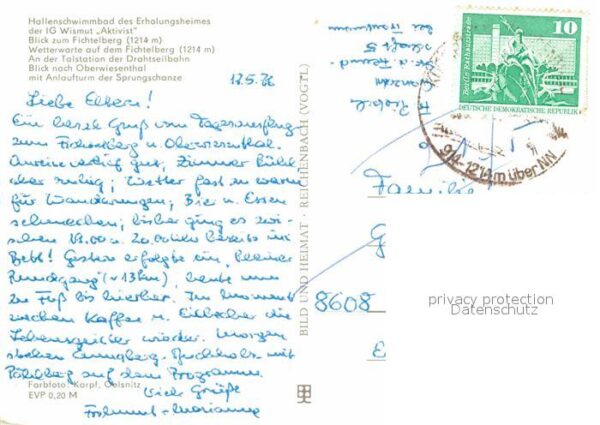 Hallenschwimmbad des Erholungsheimes
der IG Wismut „Aktivist"
Blick zum Fichtelberg (1214 m)
Wetterwarte auf dem Fichtelberg (1214 m)
An der Talstation der Drahtseilbahn
Blick nach Oberwiesenthal
mit Anlaufturm der Sprungschanze
12.5.76
Liebe Eltern!
Ein Gruß vom Tagesausflug
zum Fichtelberg u. Oberwiesenthal.
gut, Zimmer
aber ruhig; Wetter fast zu warm
für Wanderungen; Bier u. Essen
schmecken; bisher ging es zwi-
schen 19.00 u. 20.00 Uhr bereits ins
Bett! Gestern erfolgte ein kleiner
Rundgang (~13 km), heute
zu Fuß bis hierher. Im Moment
wecken Kaffee u. die
Lebensgeister wieder. Morgen
stehen Annaberg-Buchholz mit
Pöhlberg auf dem Programm.
Viele Grüße
Marianne
Farbfoto: Karpf, Oelsnitz
EVP 0,20 M
BILD UND HEIMAT · REICHENBACH (VOGTL)
10
Berlin-Rathausstraße
DEUTSCHE DEMOKRATISCHE REPUBLIK
1214 m über NN
Familie
G
8608
E
privacy protection
Datenschutz